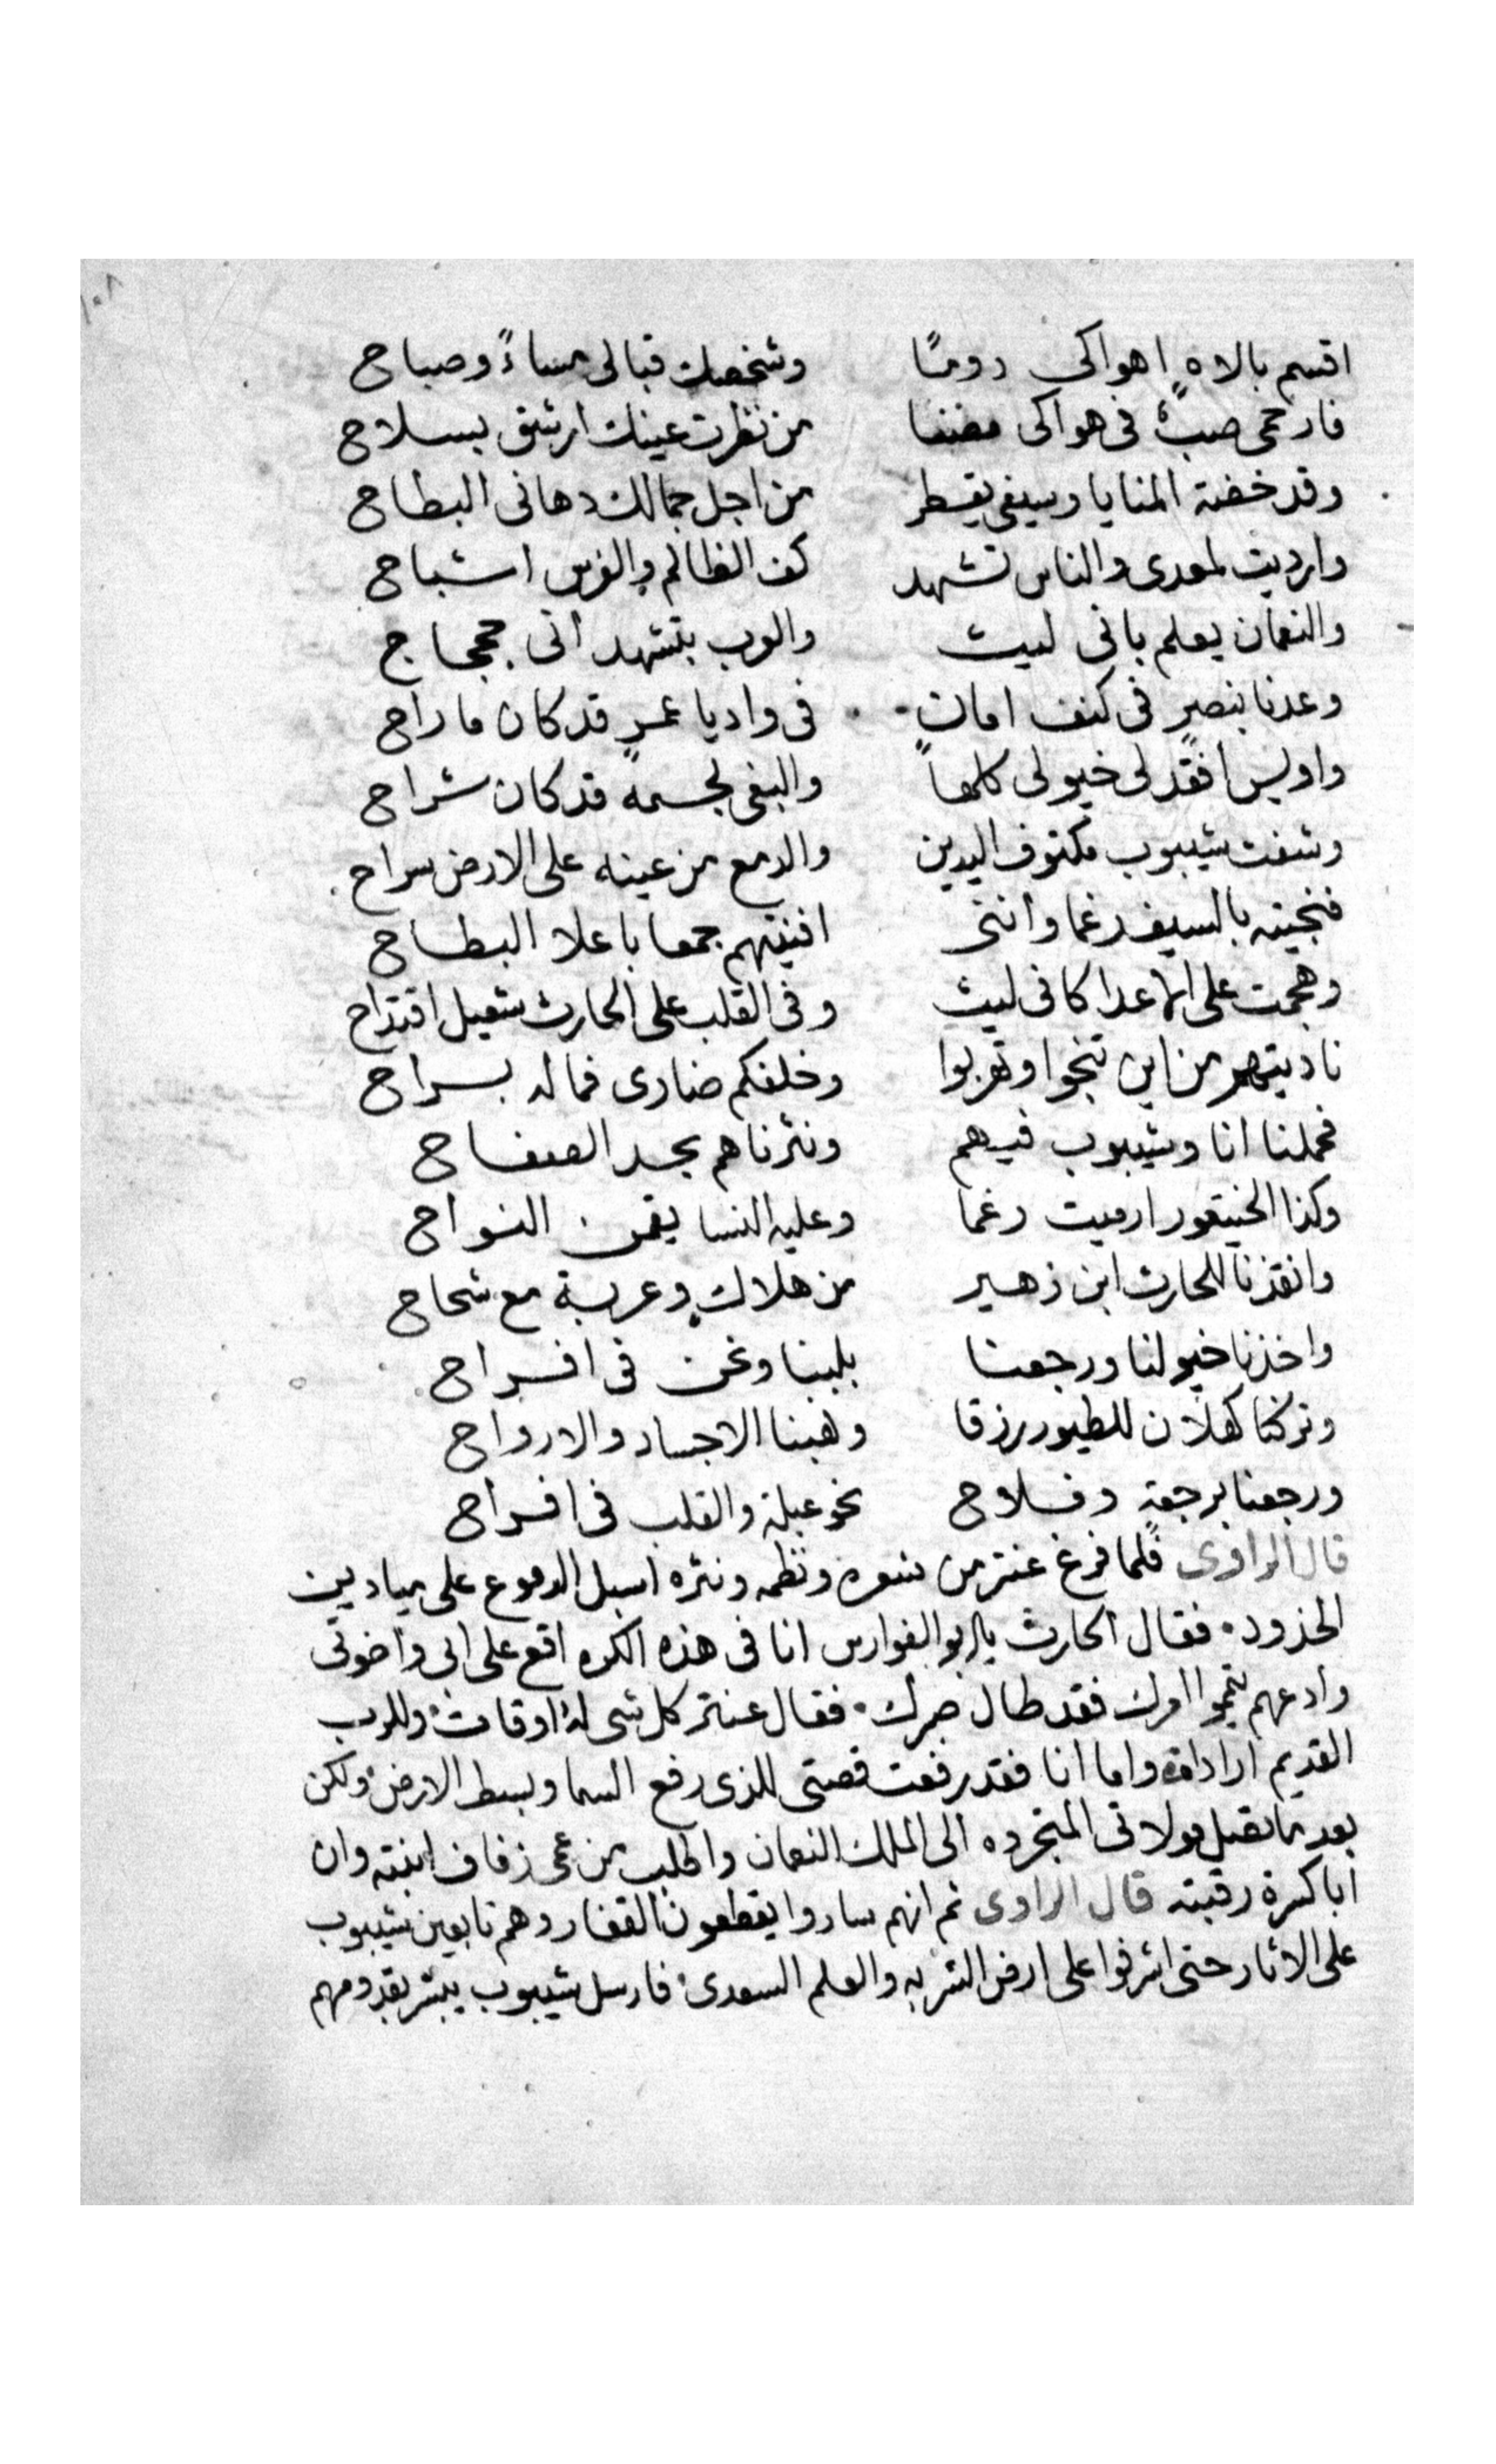 ١٠٨
اقسم بالاه اهواكى دومًا وشخصك قبالى مساءً وصباح
فارحمى صبٌ فى هواكى مضنا من نظرت عينك ارشق بسلاح
وقد خضة المنايا وسيفى يقطر من اجل جمالك دهانى البطاح
وارديت لمعدى والناس تشهد كف الظالم والفرس اشباح
والنعمان يعلم بانى ليث والعرب بتشهد انى جحجاح
وعدنا بنصرٍ فى كنف امان فى واديا عمرٍ قد كان ما راح
واويس افقد لى خيولى كلها والبغى لجسمه قد كان شراح
وشفت شيبوب مكتوف اليدين والدمع من عينه على الارض سراح
فنجيته بالسيف رغما وانثنى افنيتهم جمعا باعلا البطاح
وهجمت على الاعدا كانى ليث وفى القلب على الحارث شعيل اقتداح
ناديتهم من اين تنجوا وتهربوا وخلفكم ضارى فماله بسراح
فحملنا انا وشيبوب فيهم ونثرناهم بحد الصفاح
وكذا الخيتعور ارميت رغما وعليه النسا يقمن النواح
وانقذنا للحارث ابن زهير من هلاكٍ وعربة مع شحاح
واخذنا خيولنا ورجعنا بلبنا ونحن فى افراح
وتركنا كهلان للطيور رزقا وهبنا الاجساد والارواح
ورجعنا برجعةٍ وفلاح نحو عبلة والقلب فى افراح
قال الراوى فلما فرغ عنتر من شعره ونظمه ونثره اسبل الدموع على ميادين
الخدود فقال الحارث يا ابو الفوارس انا فى هذه الكره اقع على ابى واخوتى
وادعهم ينجوا امرك فقد طال صبرك فقال عنتر كل شى له اوقات وللرب
القديم ارادات واما انا فقد رفعت قصتى للذى رفع السما وبسط الارض ولكن
بعد ما تصل مولاتى المتجرده الى الملك النعمان واطلب من عمى زفاف ابنته وان
ابا كسرة رقبته قال الراوى ثم انهم ساروا يقطعون القفار وهم تابعين شيبوب
على الاثار حتى اشرفوا على ارض الشربه والعلم السعدى فارسل شيبوب يبشر بقدومهم